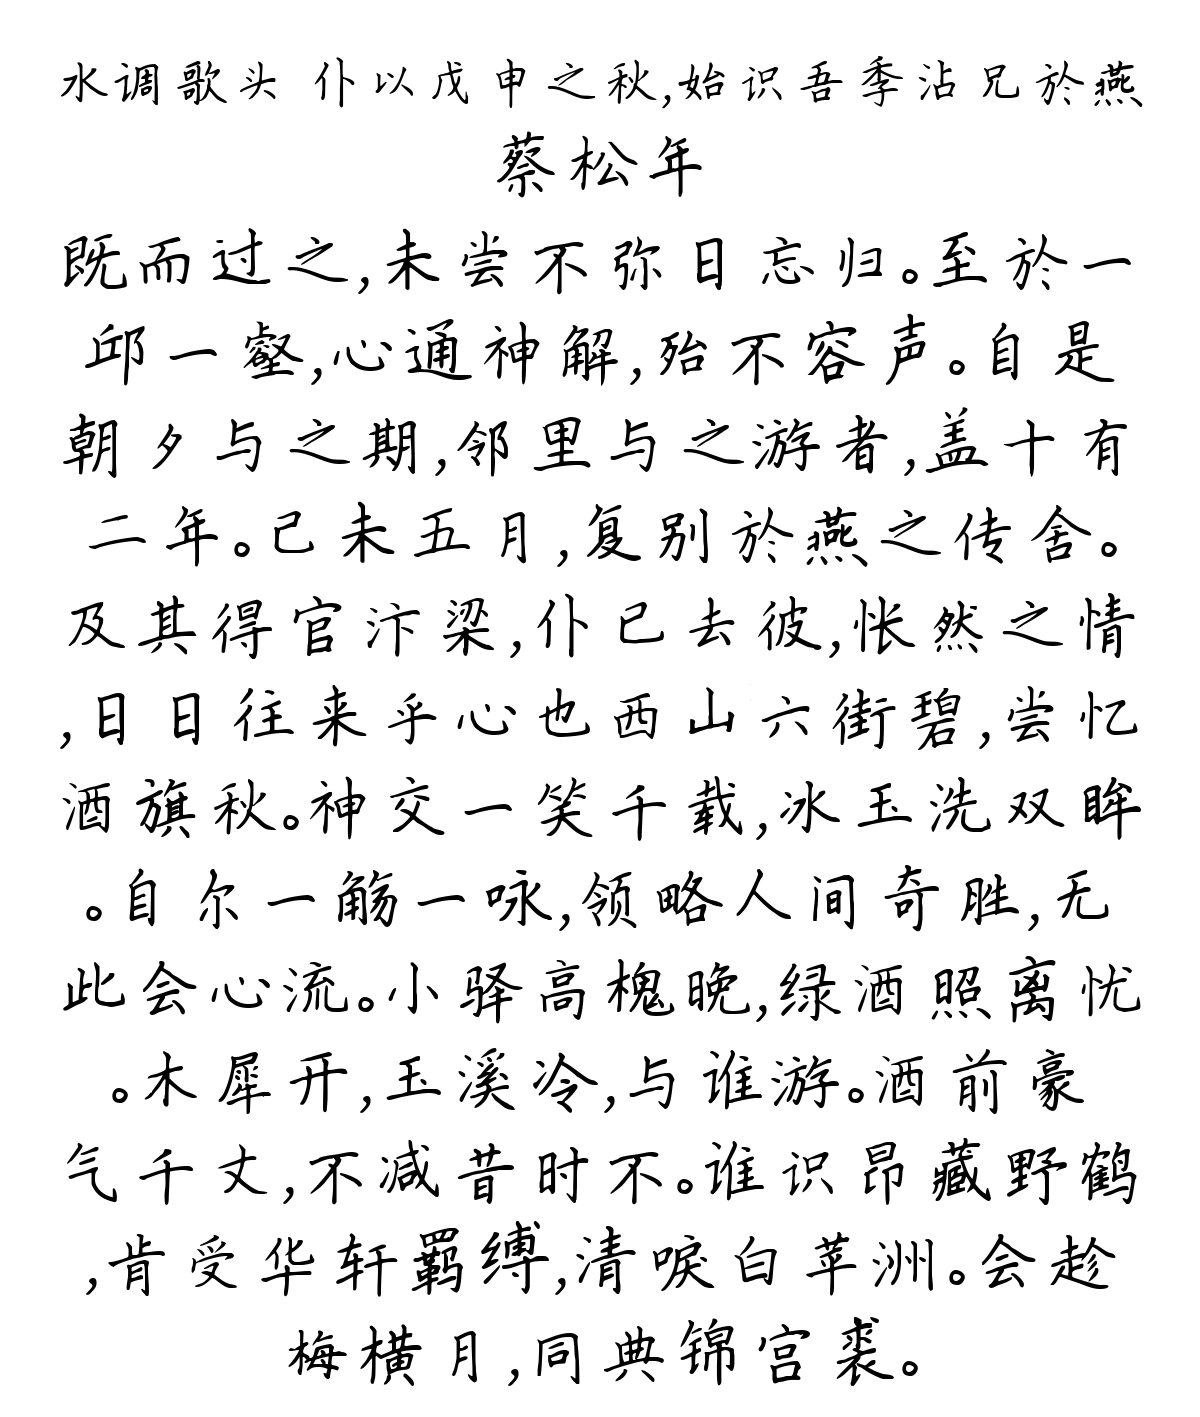 水调歌头 仆以戊申之秋,始识吾季沾兄於燕
蔡松年
既而过之,未尝不弥日忘归。至於一
邱一壑,心通神解,殆不容声。自是
朝夕与之期,邻里与之游者,盖十有
二年。己未五月,复别於燕之传舍。
及其得官汴梁,仆已去彼,怅然之情
,日日往来乎心也西山六街碧,尝忆
酒旗秋。神交一笑千载,冰玉洗双眸
。自尔一觞一咏,领略人间奇胜,无
此会心流。小驿高槐晚,绿酒照离忧
。木犀开,玉溪冷,与谁游。酒前豪
气千丈,不减昔时不。谁识昂藏野鹤
,肯受华轩羁缚,清唳白苹洲。会趁
梅横月,同典锦宫裘。